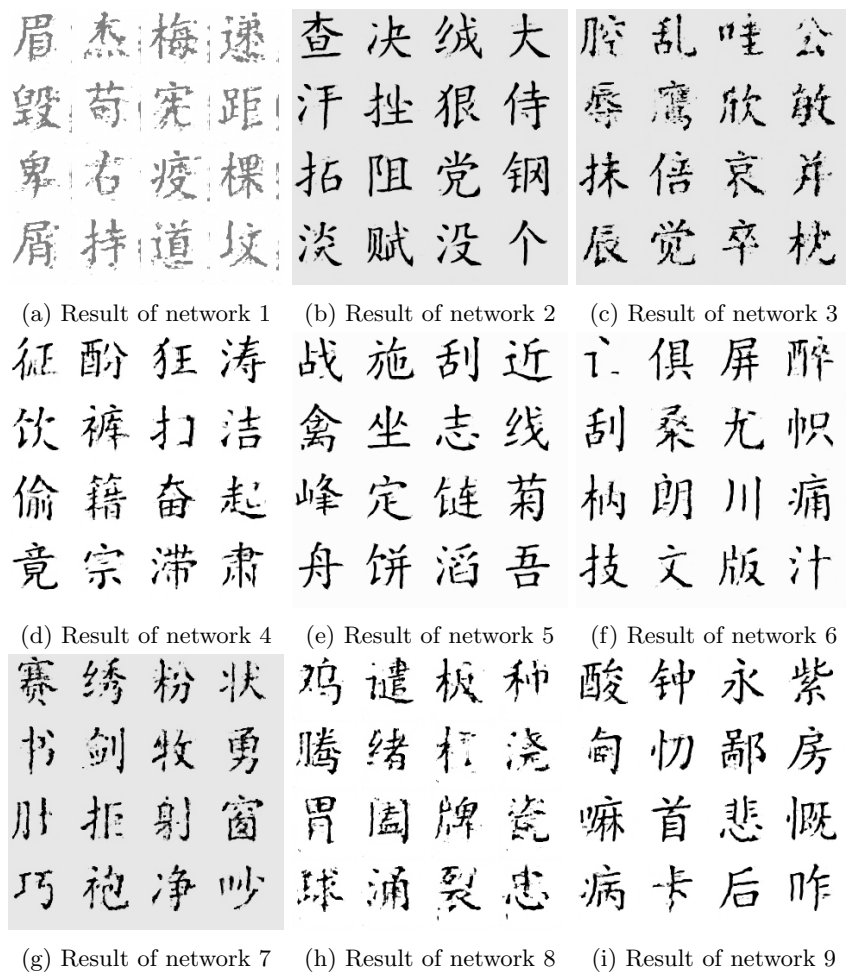 眉 杰 梅 速
毁 苟 宪 距
卑 右 疫 棵
屑 持 道 坟
(a) Result of network 1
查 决 绒 大
汗 挫 狠 侍
拓 阻 党 钢
淡 赋 没 个
(b) Result of network 2
腔 乱 哇 公
辱 鹰 欣 敏
抹 倍 哀 并
辰 觉 卒 枕
(c) Result of network 3
征 酚 狂 涛
饮 裤 扣 洁
偷 籍 奋 起
竟 宗 滞 肃
(d) Result of network 4
战 施 刮 近
禽 坐 志 线
峰 定 链 菊
舟 饼 滔 吾
(e) Result of network 5
俱 屏 醉
刮 桑 尤 帜
柄 朗 川 痛
技 文 版 汁
(f) Result of network 6
赛 绣 粉 状
书 剑 牧 勇
肚 拒 射 窗
巧 袍 净 吵
(g) Result of network 7
鸡 谴 板 种
腾 绪 杠 浇
胃 阖 牌 瓷
球 涌 裂 忠
(h) Result of network 8
酸 钟 永 紫
甸 忉 鄙 房
嘛 首 悲 慨
病 卡 后 咋
(i) Result of network 9